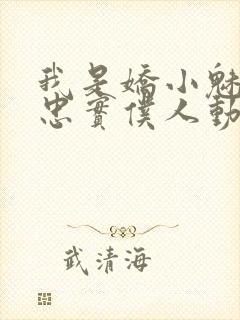 我是嬌小魅
忠實僕人動
武清海